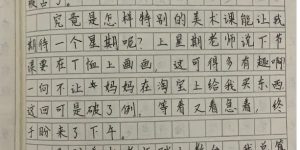 究竟是怎样特别的美术课能让我
期待一个星期呢？上星期老师说下节
课要在T恤上画画，这可得多有趣啊！
一向不让妈妈在淘宝上给我买东西
这回可是破了例。等着又看急着，终
于盼来了下午。